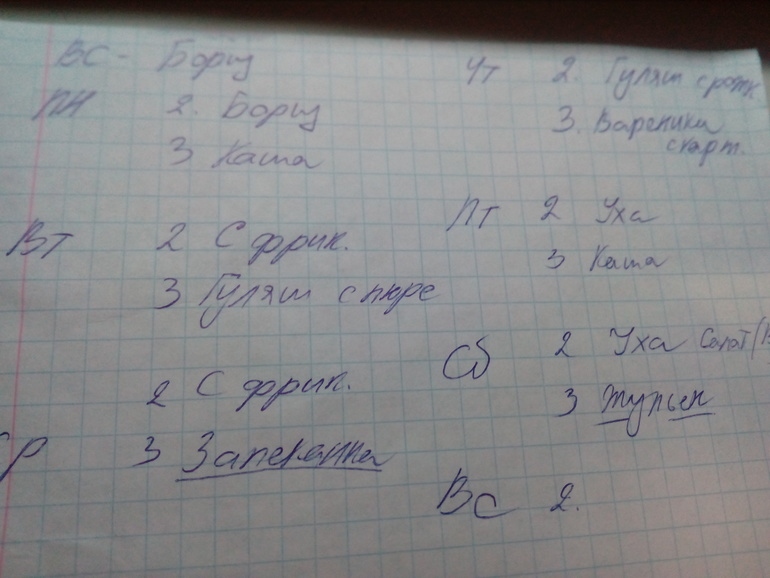 ВС - Борщ
ПН 2. Борщ
3 Каша
Вт 2 С фрик.
3 Гуляш с пюре
2 С фрик.
ср 3 Запеканка
Чт 2. Гуляш с рожк
3. Вареники
с карт.
Пт 2 Уха
3 Каша
Сб 2 Уха Салат/
3 Жульен
Вс 2.